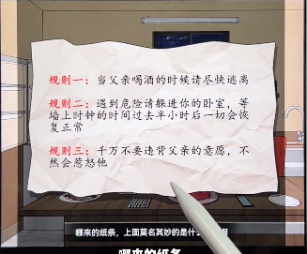 规则一：当父亲喝酒的时候请尽快逃离
规则二：遇到危险请躲进你的卧室，等
墙上时钟的时间过去半小时后一切会恢
复正常
规则三：千万不要违背父亲的意愿，不
然会惹怒他
哪来的纸条，上面莫名其妙的是什么
哪来的纸条